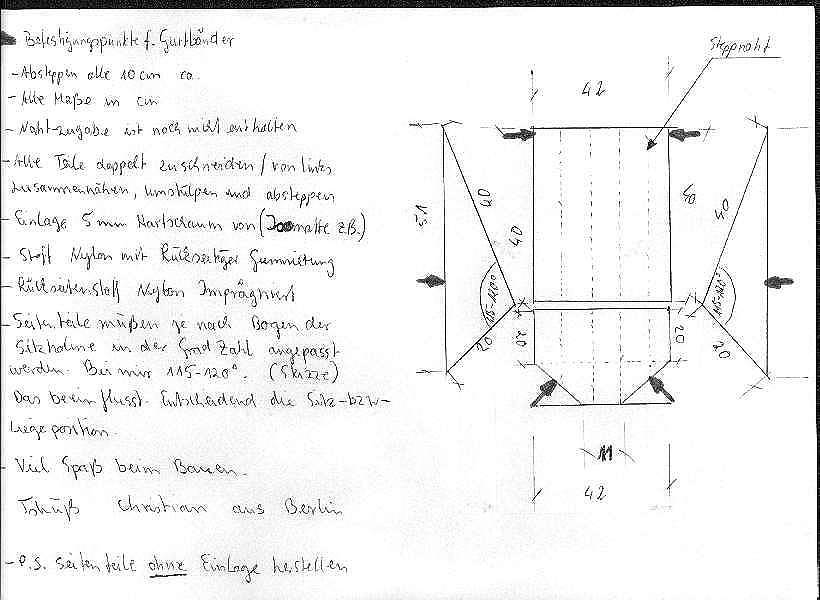 Befestigungspunkte f. Gurtbänder
- Absteppen alle 10 cm ca.
- Alle Maße in cm
- Nahtzugabe ist noch nicht enthalten
- Alle Teile doppelt zuschneiden / von links
zusammennähen, umstülpen und absteppen
- Einlage 5 mm Hartschaum von (Isomatte z.B.)
- Stoff Nylon mit Rückseitiger Gummierung
- Rückseitenstoff Nylon Imprägniert
- Seitenteile müßen je nach Bogen der
Sitzholme in der Grad Zahl angepasst
werden. Bei mir 115-120°. (Skizze)
Das beeinflusst Entscheidend die Sitz- bzw-
Liegeposition.
- Viel Spaß beim Bauen.
Tschüß Christian aus Berlin
- P.S. Seitenteile ohne Einlage herstellen
Steppnaht
42
40
40
40
40
115-120°
115-120°
20
20
20
20
11
42